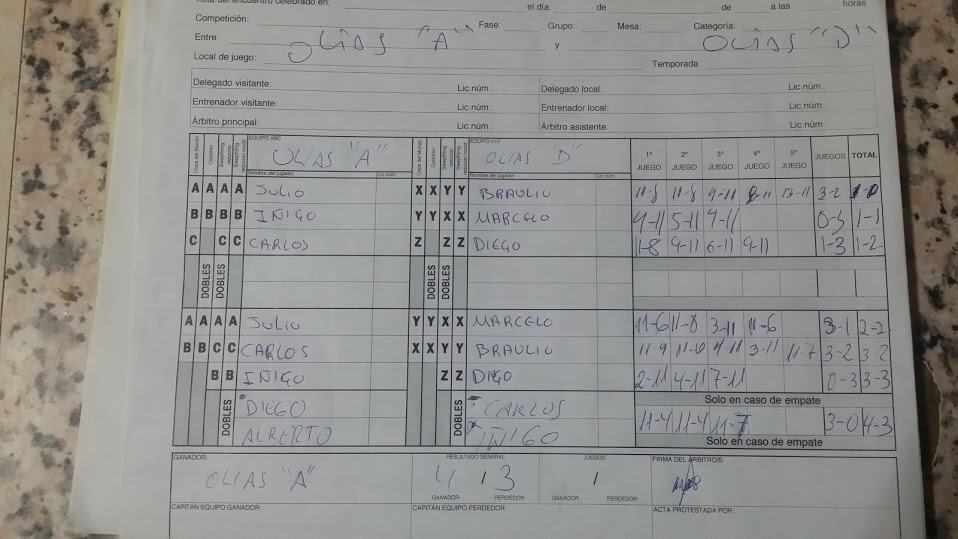 Acta del encuentro celebrado en: el día: de de a las horas
Competición: Fase: Grupo: Mesa: Categoría:
Entre: OLIAS "A" y OLIAS "D"
Local de juego: Temporada:
Delegado visitante: Lic.núm.: Delegado local: Lic.núm.:
Entrenador visitante: Lic.núm.: Entrenador local: Lic.núm.
Árbitro principal: Lic.núm.: Árbitro asistente: Lic.núm.
Copa del Mundo Corbillón Swaythling reducido Swaythling EQUIPO ABC OLIAS "A" Copa del Mundo Corbillón Swaythling reducido Swaythling EQUIPO XYZ OLIAS "D" 1º JUEGO 2º JUEGO 3º JUEGO 4º JUEGO 5º JUEGO JUEGOS TOTAL
Nombre del jugador Lic.núm. Nombre del jugador Lic.núm.
A A A A JULIO X X Y Y BRAULIO 11-8 11-8 9-11 11 13-11 3-2 1-0
B B B B IÑIGO Y Y X X MARCELO 4-11 5-11 4-11 0-3 1-1
C C C CARLOS Z Z Z DIEGO 11-8 9-11 6-11 9-11 1-3 1-2
DOBLES DOBLES DOBLES DOBLES
A A A A JULIO Y Y X X MARCELO 11-6 11-8 3-11 11-6 3-1 2-2
B B C C CARLOS X X Y Y BRAULIO 11-9 11-6 11 3-11 11-7 3-2 3-2
B B IÑIGO Z Z DIEGO 2-11 4-11 7-11 0-3 3-3
Solo en caso de empate
DOBLES DIEGO DOBLES CARLOS 11-4 11-4 11-7 3-0 4-3
ALBERTO IÑIGO Solo en caso de empate
GANADOR RESULTADO GENERAL JUEGOS FIRMA DEL ÁRBITRO/S:
OLIAS "A" 4 / 3 /
GANADOR PERDEDOR GANADOR PERDEDOR
CAPITÁN EQUIPO GANADOR: CAPITÁN EQUIPO PERDEDOR: ACTA PROTESTADA POR: